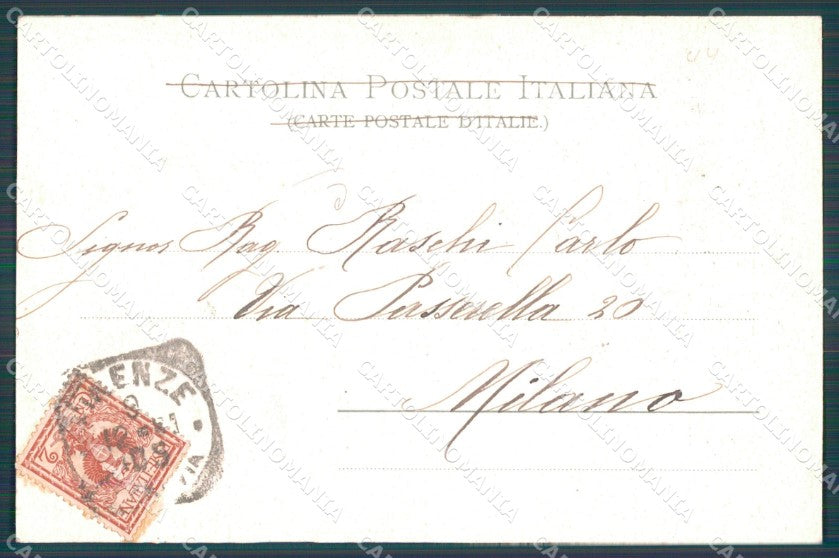 CARTOLINA POSTALE ITALIANA
(CARTE POSTALE D'ITALIE.)
Signor Rag. Raschi Carlo
Via Passerella 20
Milano
FIRENZE
CARTOLINOMANIA